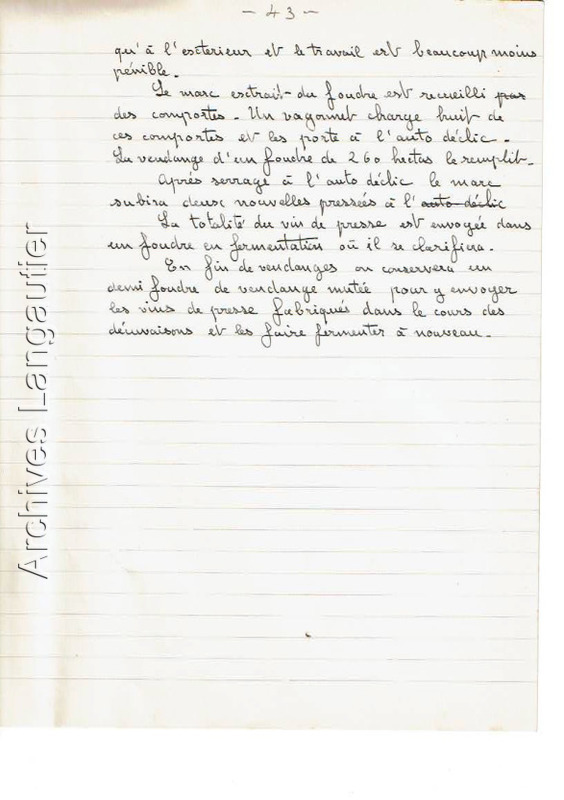 - 43 -
qu'à l'extérieur et le travail est beaucoup moins
pénible.
Le marc extrait du foudre est recueilli pas
des comportes. Un vagonnet charge huit de
ces comportes et les porte à l'auto déclic.
La vendange d'un foudre de 260 hectos le remplit.
Après serrage à l'auto déclic le marc
subira deux nouvelles pressées à l'auto déclic
La totalité du vin de presse est envoyée dans
un foudre en fermentation où il se clarifiera.
En fin de vendanges on conservera un
demi foudre de vendange mutée pour y envoyer
les vins de presse fabriqués dans le cours des
décuvaisons et les faire fermenter à nouveau.
Archives Langautier